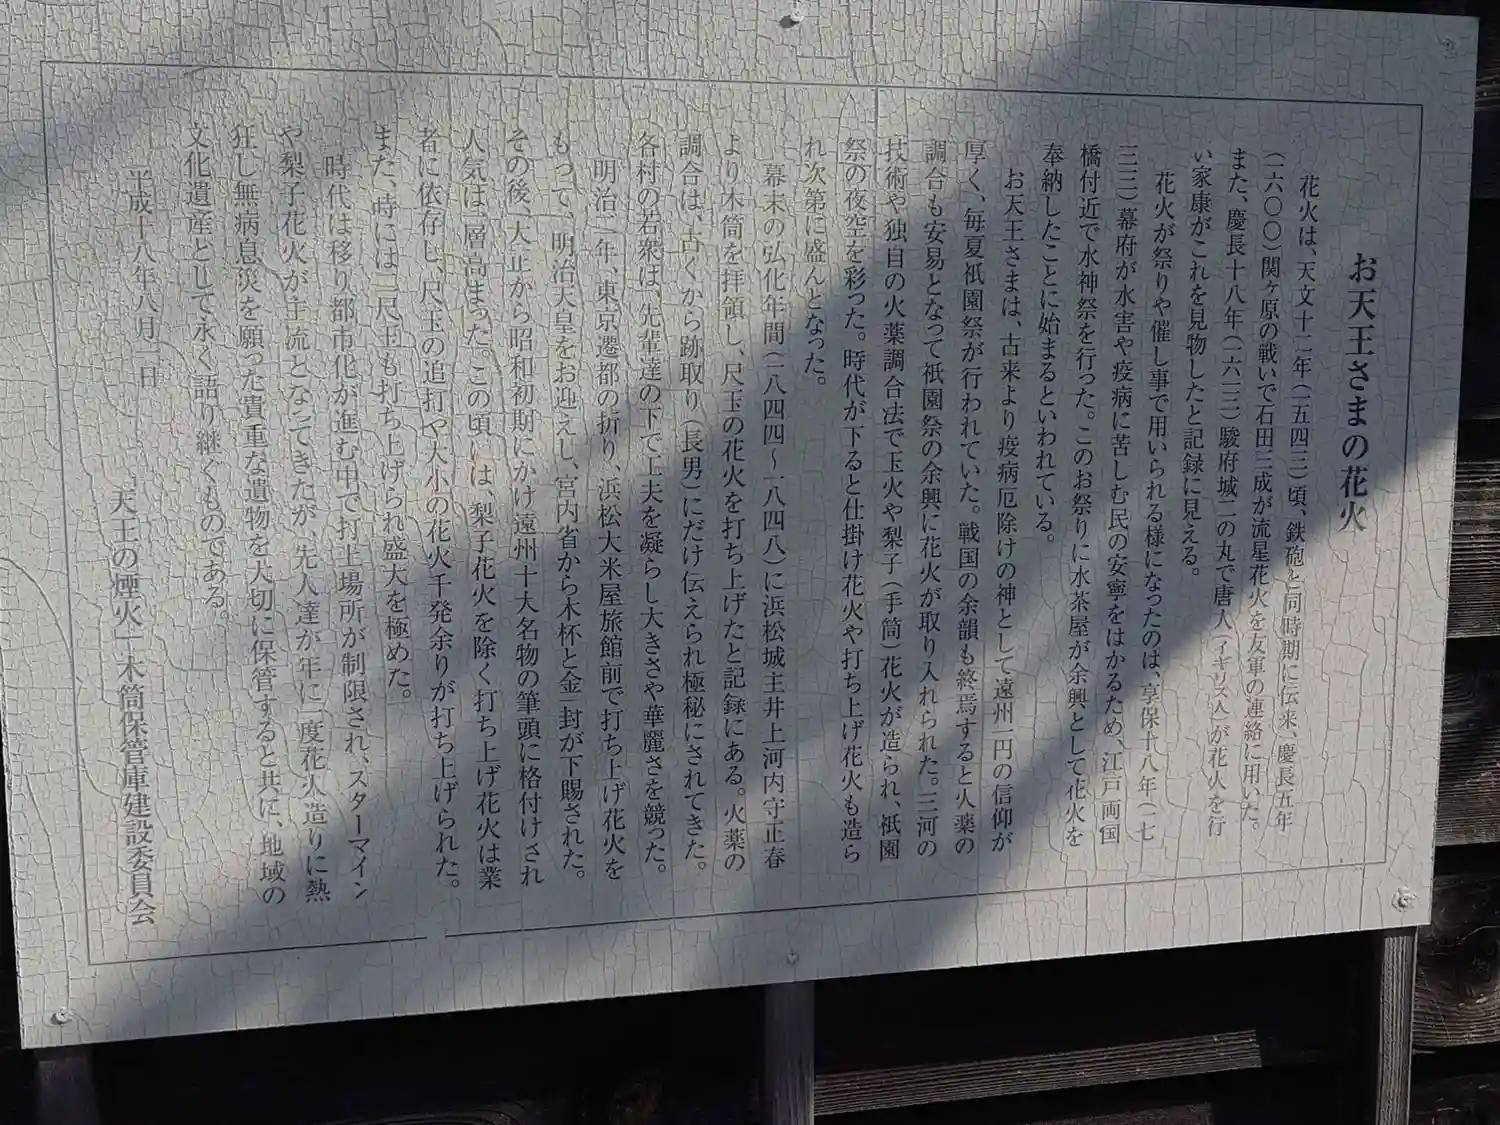 お天王さまの花火
花火は、天文十二年（一五四三）頃、鉄砲と同時期に伝来、慶長五年
（一六〇〇）関ヶ原の戦いで石田三成が流星花火を友軍の連絡に用いた。
また、慶長十八年（一六一三）駿府城二の丸で唐人（イギリス人）が花火を行
い家康がこれを見物したと記録に見える。
花火が祭りや催し事で用いられる様になったのは、享保十八年（一七
三三）幕府が水害や疫病に苦しむ民の安寧をはかるため、江戸両国
橋付近で水神祭を行った。このお祭りに水茶屋が余興として花火を
奉納したことに始まるといわれている。
お天王さまは、古来より疫病厄除けの神として遠州一円の信仰が
厚く、毎夏祇園祭が行われていた。戦国の余韻も終焉すると火薬の
調合も安易となって祇園祭の余興に花火が取り入れられた。三河の
技術や独自の火薬調合法で玉火や梨子（手筒）花火が造られ、祇園
祭の夜空を彩った。時代が下ると仕掛け花火や打ち上げ花火も造ら
れ次第に盛んとなった。
幕末の弘化年間（一八四四～一八四八）に浜松城主井上河内守正春
より木筒を拝領し、尺玉の花火を打ち上げたと記録にある。火薬の
調合は、古くから跡取り（長男）にだけ伝えられ極秘にされてきた。
各村の若衆は、先輩達の下で工夫を凝らし大きさや華麗さを競った。
明治二年、東京遷都の折り、浜松大米屋旅館前で打ち上げ花火を
もって、明治天皇をお迎えし、宮内省から木杯と金一封が下賜された。
その後、大正から昭和初期にかけ遠州十大名物の筆頭に格付けされ
人気は一層高まった。この頃には、梨子花火を除く打ち上げ花火は業
者に依存し、尺玉の追打や大小の花火千発余りが打ち上げられた。
また、時には二尺玉も打ち上げられ盛大を極めた。
時代は移り都市化が進む中で打上場所が制限され、スターマイン
や梨子花火が主流となってきたが、先人達が年に一度花火造りに熱
狂し無病息災を願った貴重な遺物を大切に保管すると共に、地域の
文化遺産として永く語り継ぐものである。
平成十八年八月一日
天王の煙火　木筒保管庫建設委員会